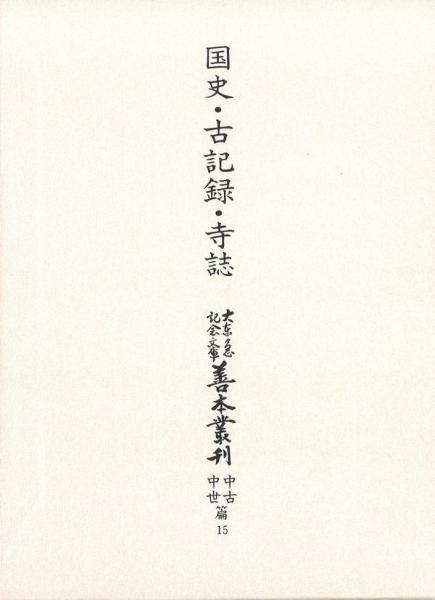 国史・古記録・寺誌
大東急
記念文庫
善本叢刊
中古
中世
篇
15